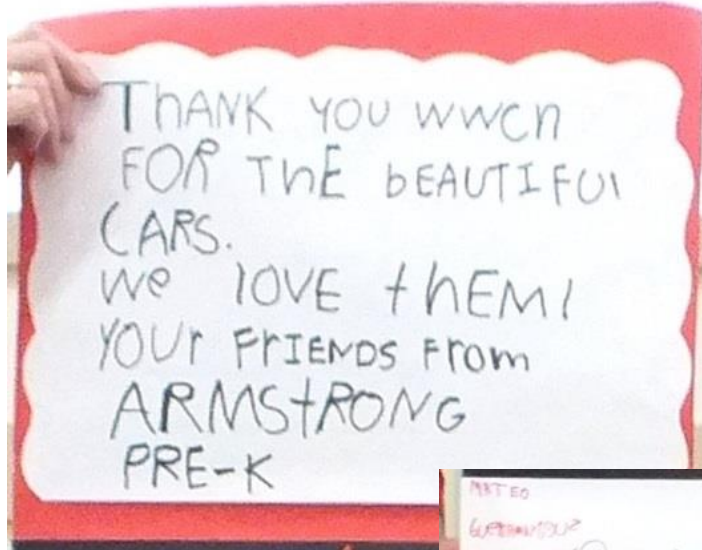 ThANK YOU wwcn
FOR ThE bEAUTIFUl
CARS.
We lOVE thEM!
YOUr FrIENDS From
ARMStRONG
PRE-K
MATEO